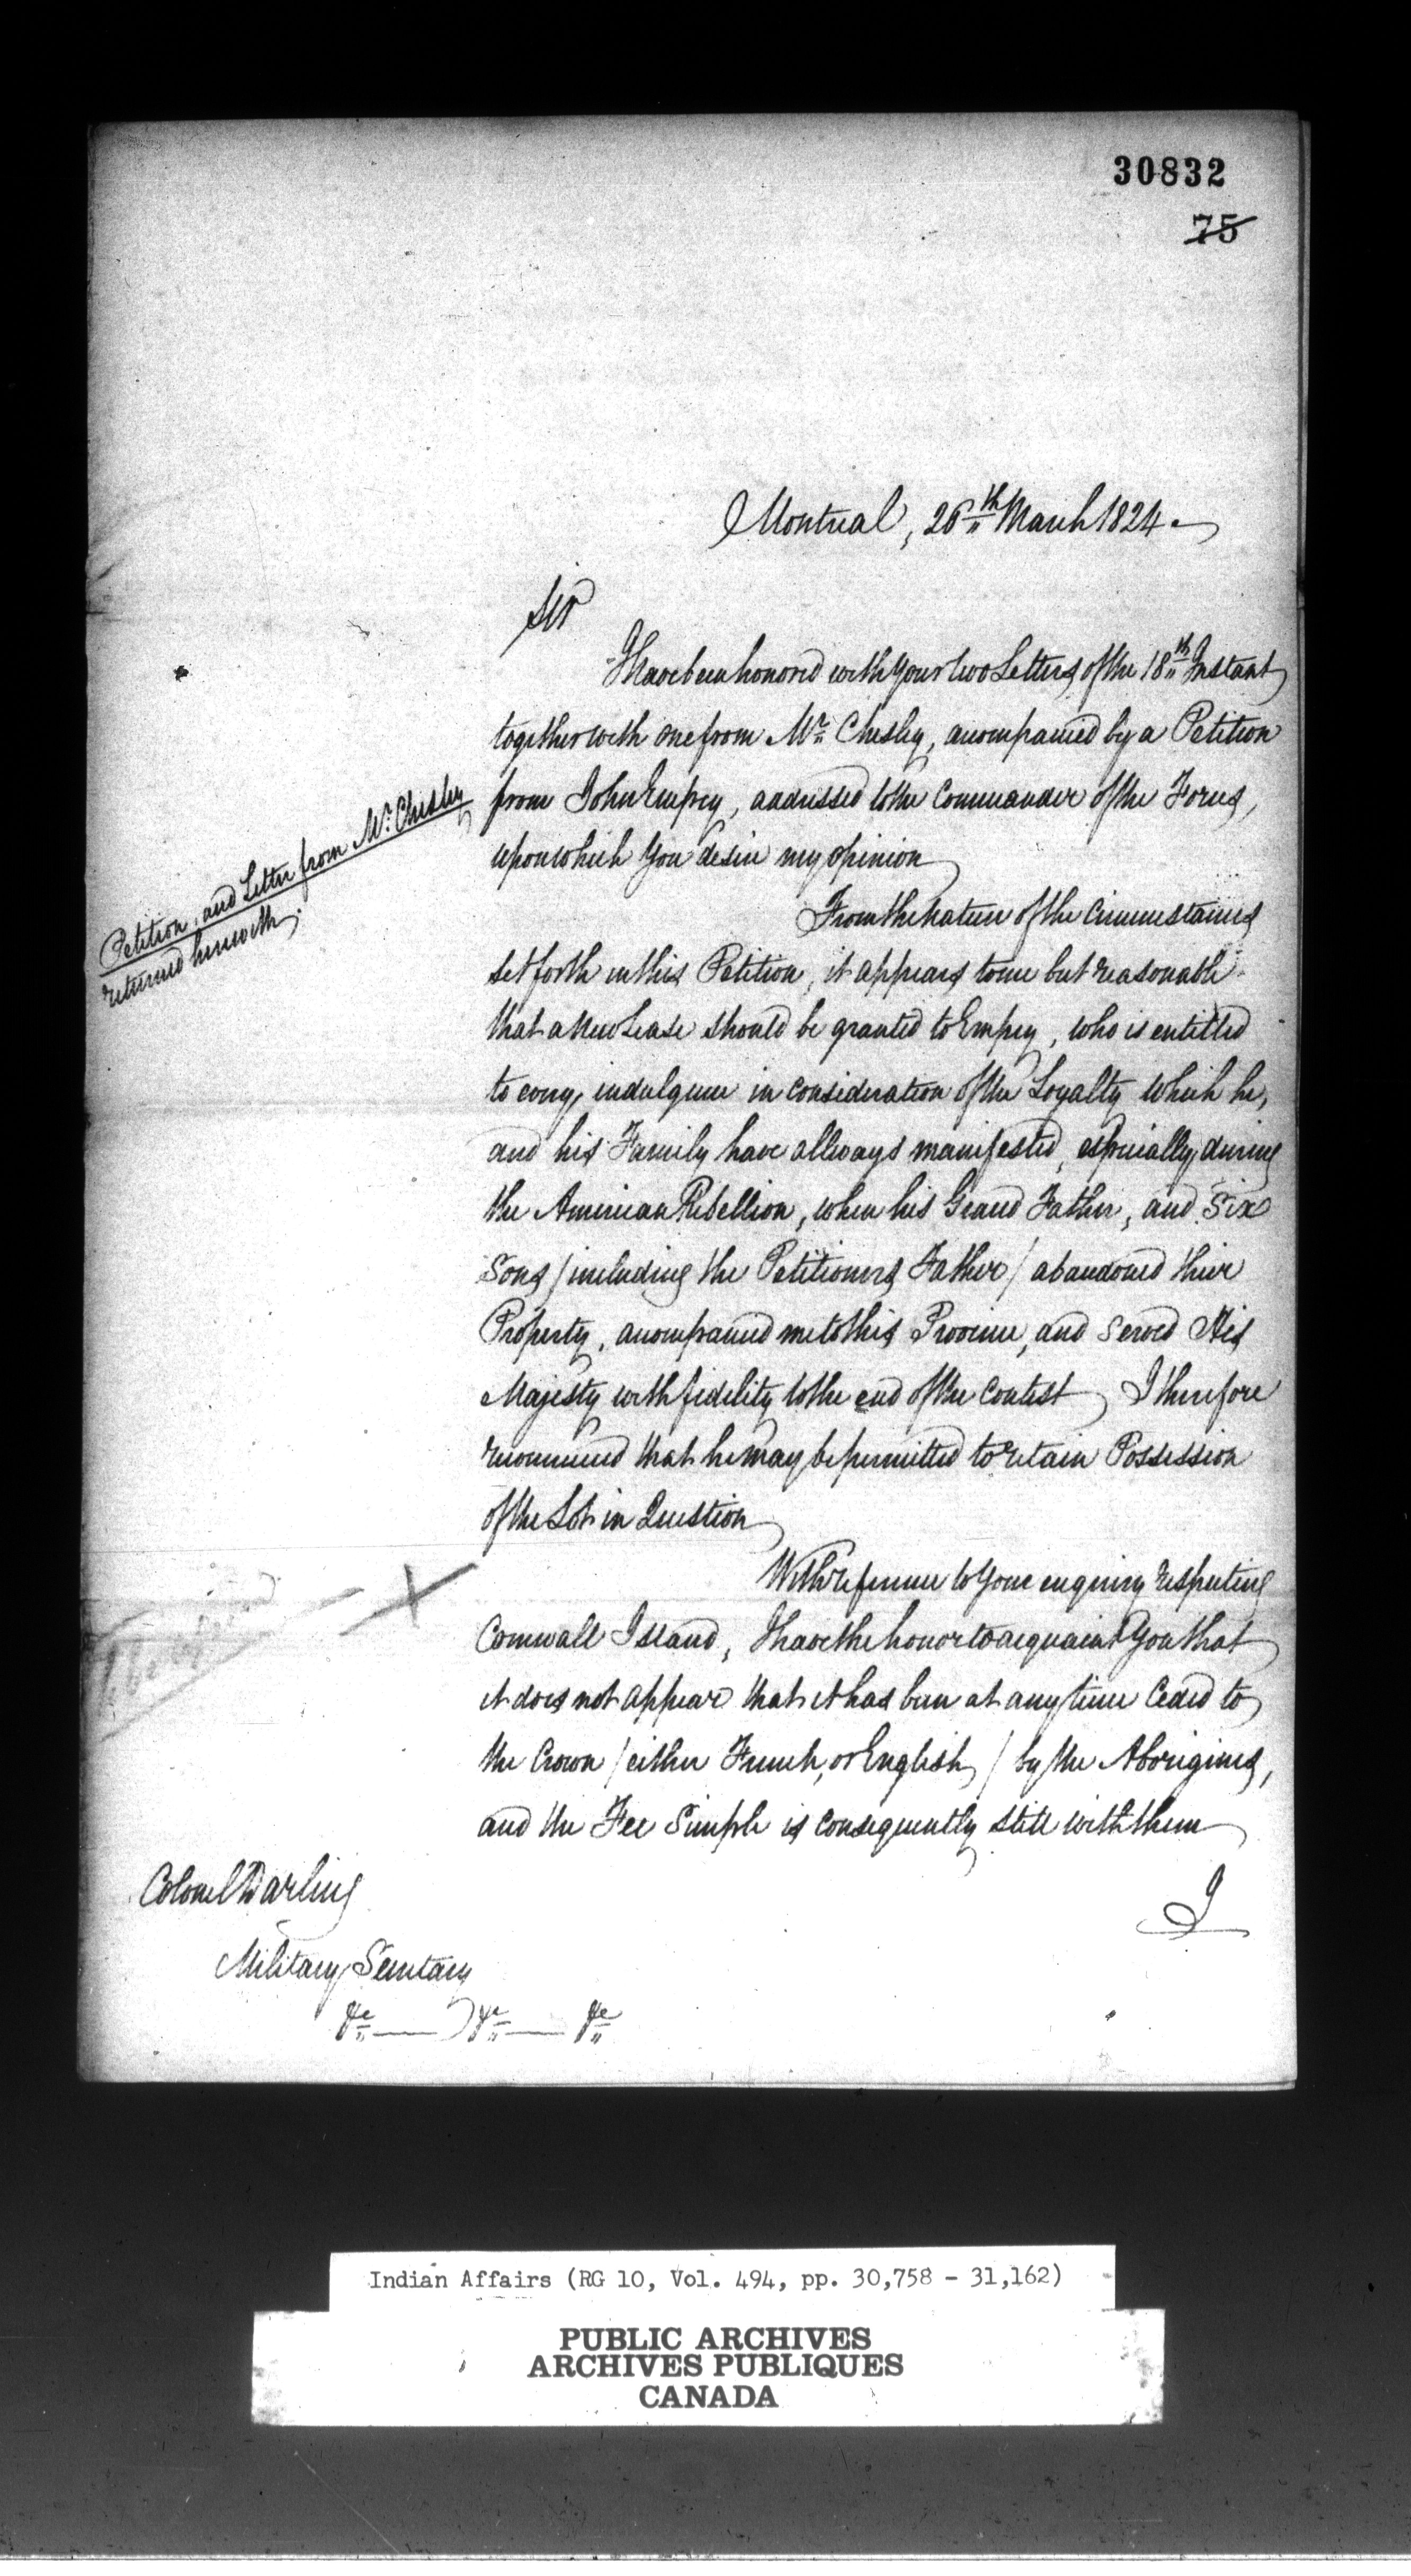 30832
75
Montreal, 26th March 1824
Sir
I have been honored with your two Letters of the 18th Instant
together with one from Mr Chesley, accompanied by a Petition
from John Empey, addressed to the Commander of the Forces,
upon which you desire my opinion
Petition, and Letter from Mr Chesley
returned herewith.
From the Nature of the Circumstances
set forth in this Petition, it appears to me but reasonable
that a New Lease should be granted to Empey, who is entitled
to every indulgence in consideration of the Loyalty which he,
and his Family have allways manifested, especially during
the American Rebellion, when his Grand Father, and Six
Sons / including the Petitioners Father / abandoned their
Property, accompanied me to this Province, and served His
Majesty with fidelity to the end of the Contest I therefore
recommend that he may be permitted to retain Possession
of the Lot in Question
With reference to your enquiry respecting
Cornwall Island, I have the honor to acquaint You that
it does not appear that it has been at any time Ceded to
the Crown / either French, or English / by the Aborigines,
and the Fee Simple is consequently still with them
I
Colonel Darling
Military Secretary
&c &c &c
Indian Affairs (RG 10, Vol. 494, pp. 30,758 - 31,162)
PUBLIC ARCHIVES
ARCHIVES PUBLIQUES
CANADA